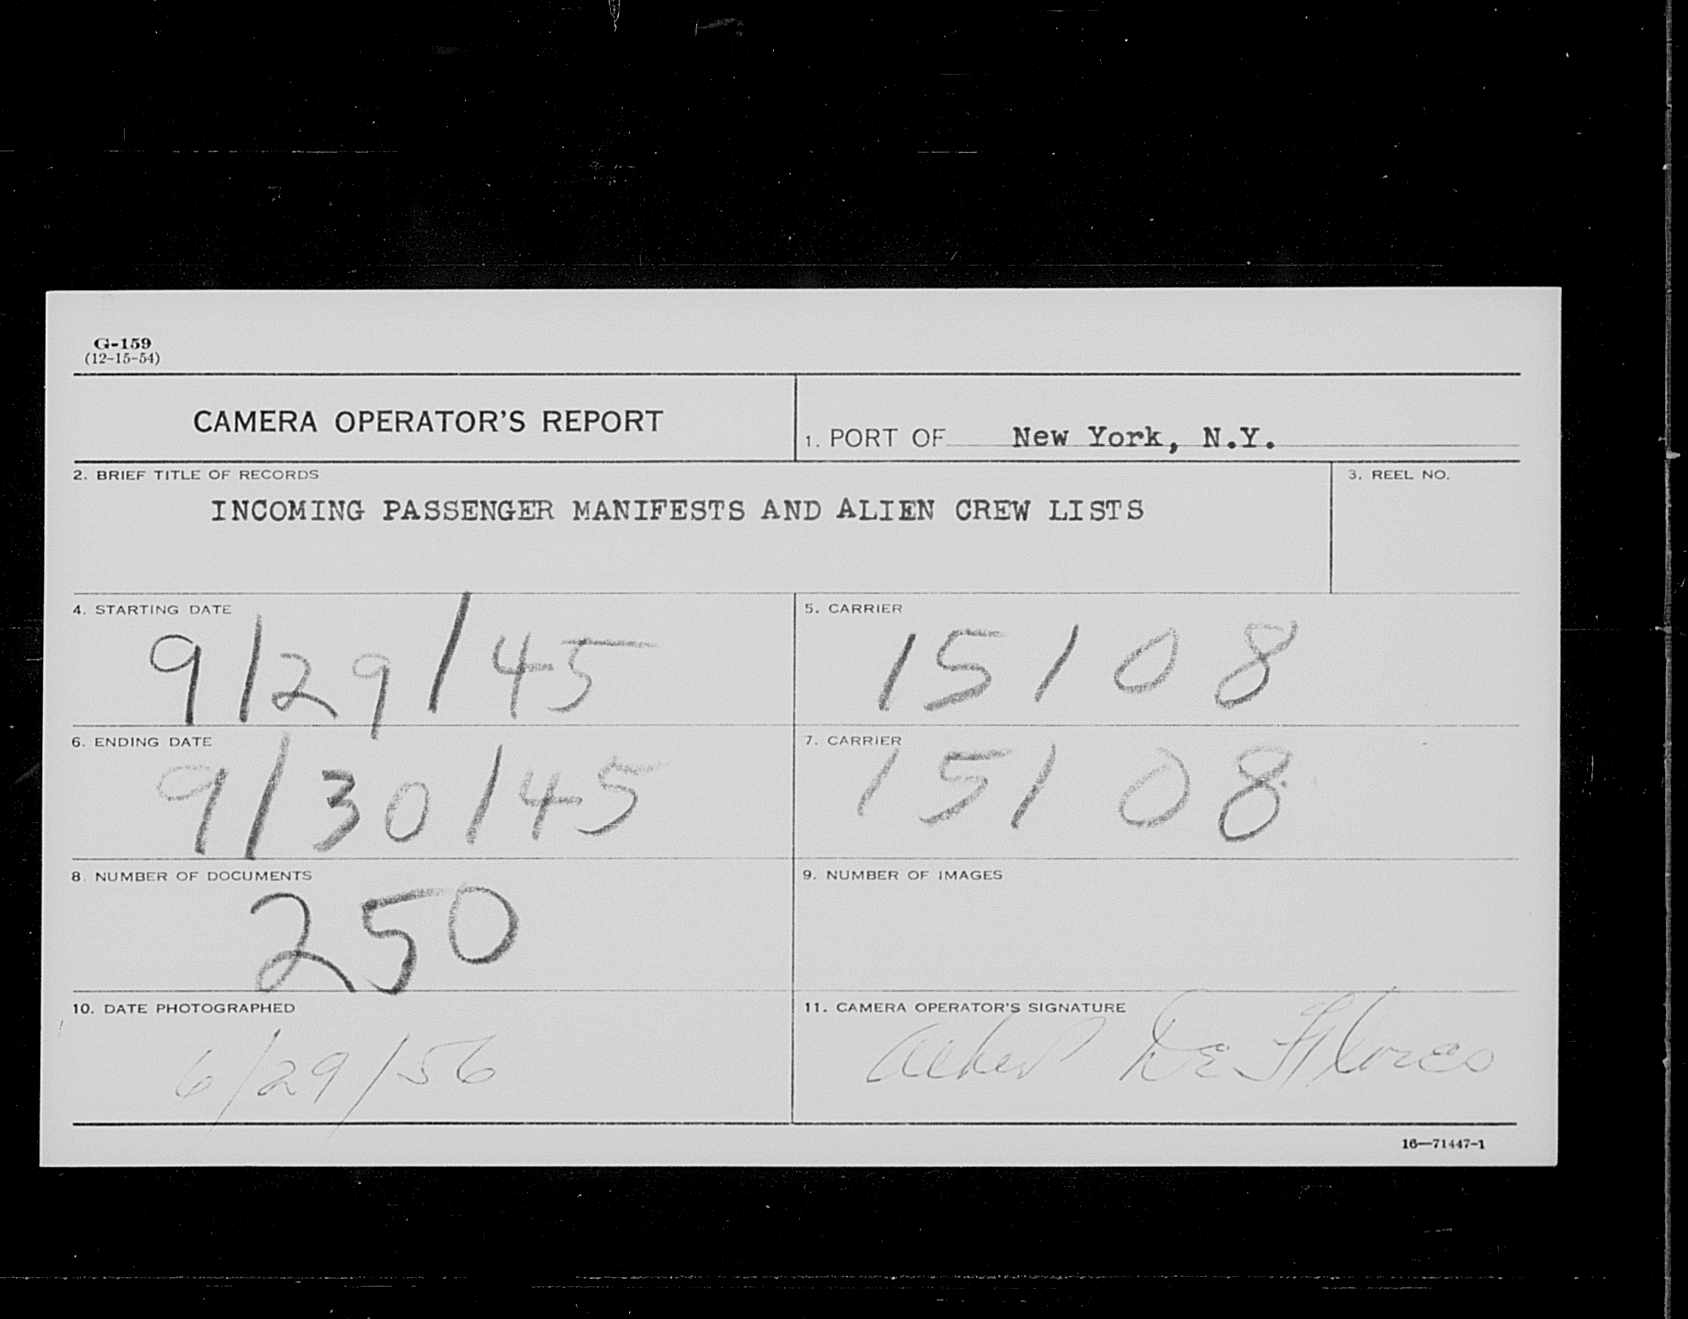 G-159
(12-15-54)
CAMERA OPERATOR'S REPORT
1. PORT OF New York, N.Y.
2. BRIEF TITLE OF RECORDS
3. REEL NO.
INCOMING PASSENGER MANIFESTS AND ALIEN CREW LISTS
4. STARTING DATE
9/29/45
5. CARRIER
15108
6. ENDING DATE
9/30/45
7. CARRIER
15108
8. NUMBER OF DOCUMENTS
250
9. NUMBER OF IMAGES
10. DATE PHOTOGRAPHED
6/29/56
11. CAMERA OPERATOR'S SIGNATURE
De Flores
16—71447-1